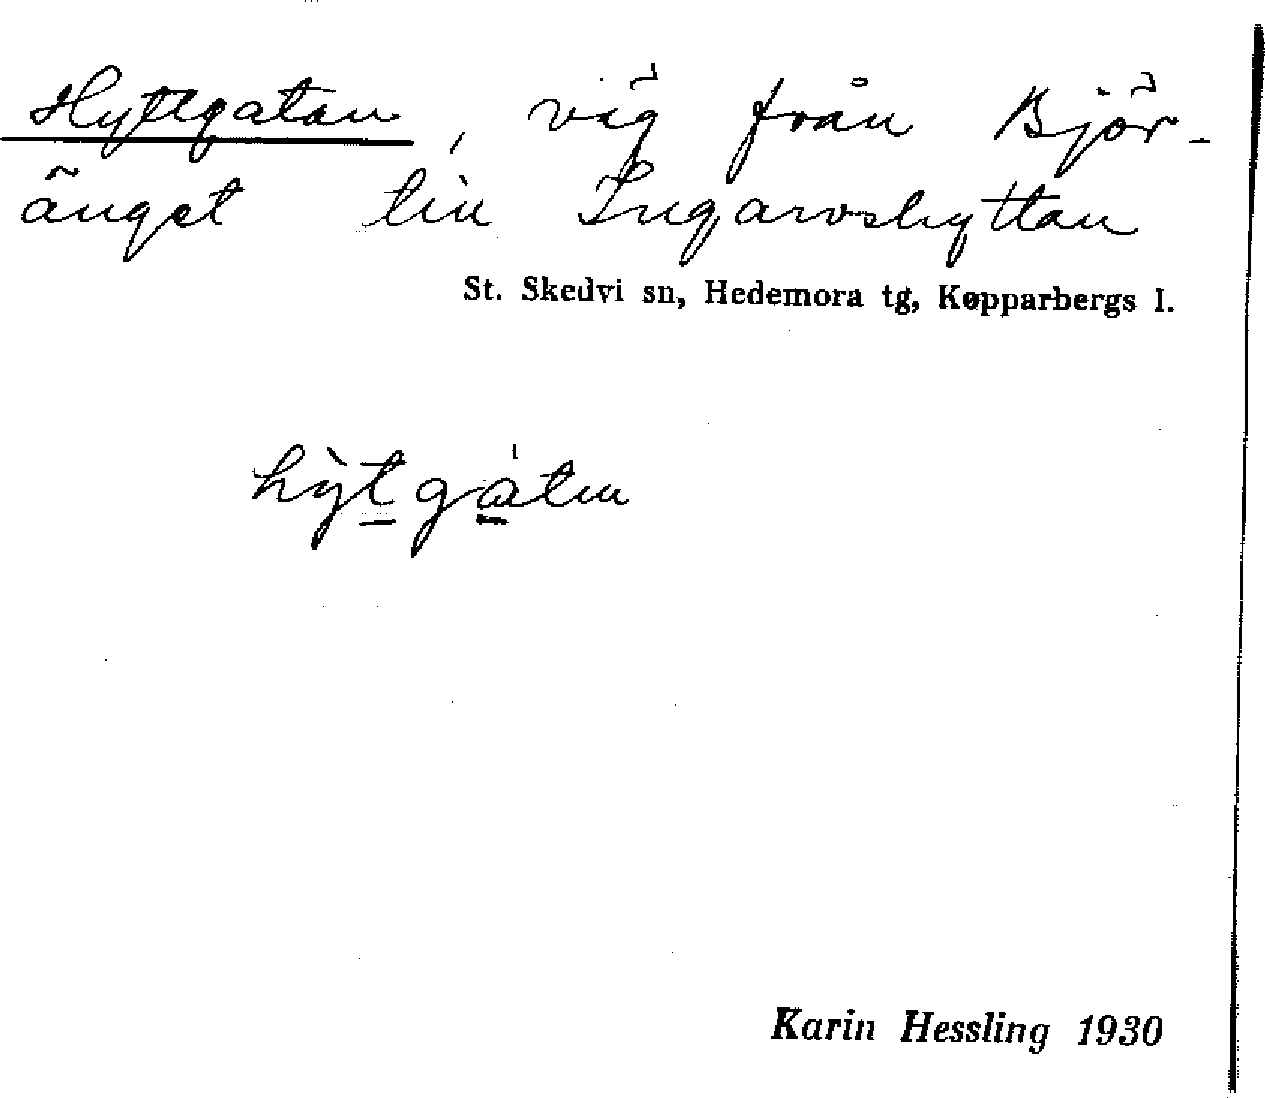 Hyttgatan, väg från Björ-
änget till Ingarvshyttan
St. Skedvi sn, Hedemora tg, Kopparbergs l.
hỳtgátın
Karin Hessling 1930